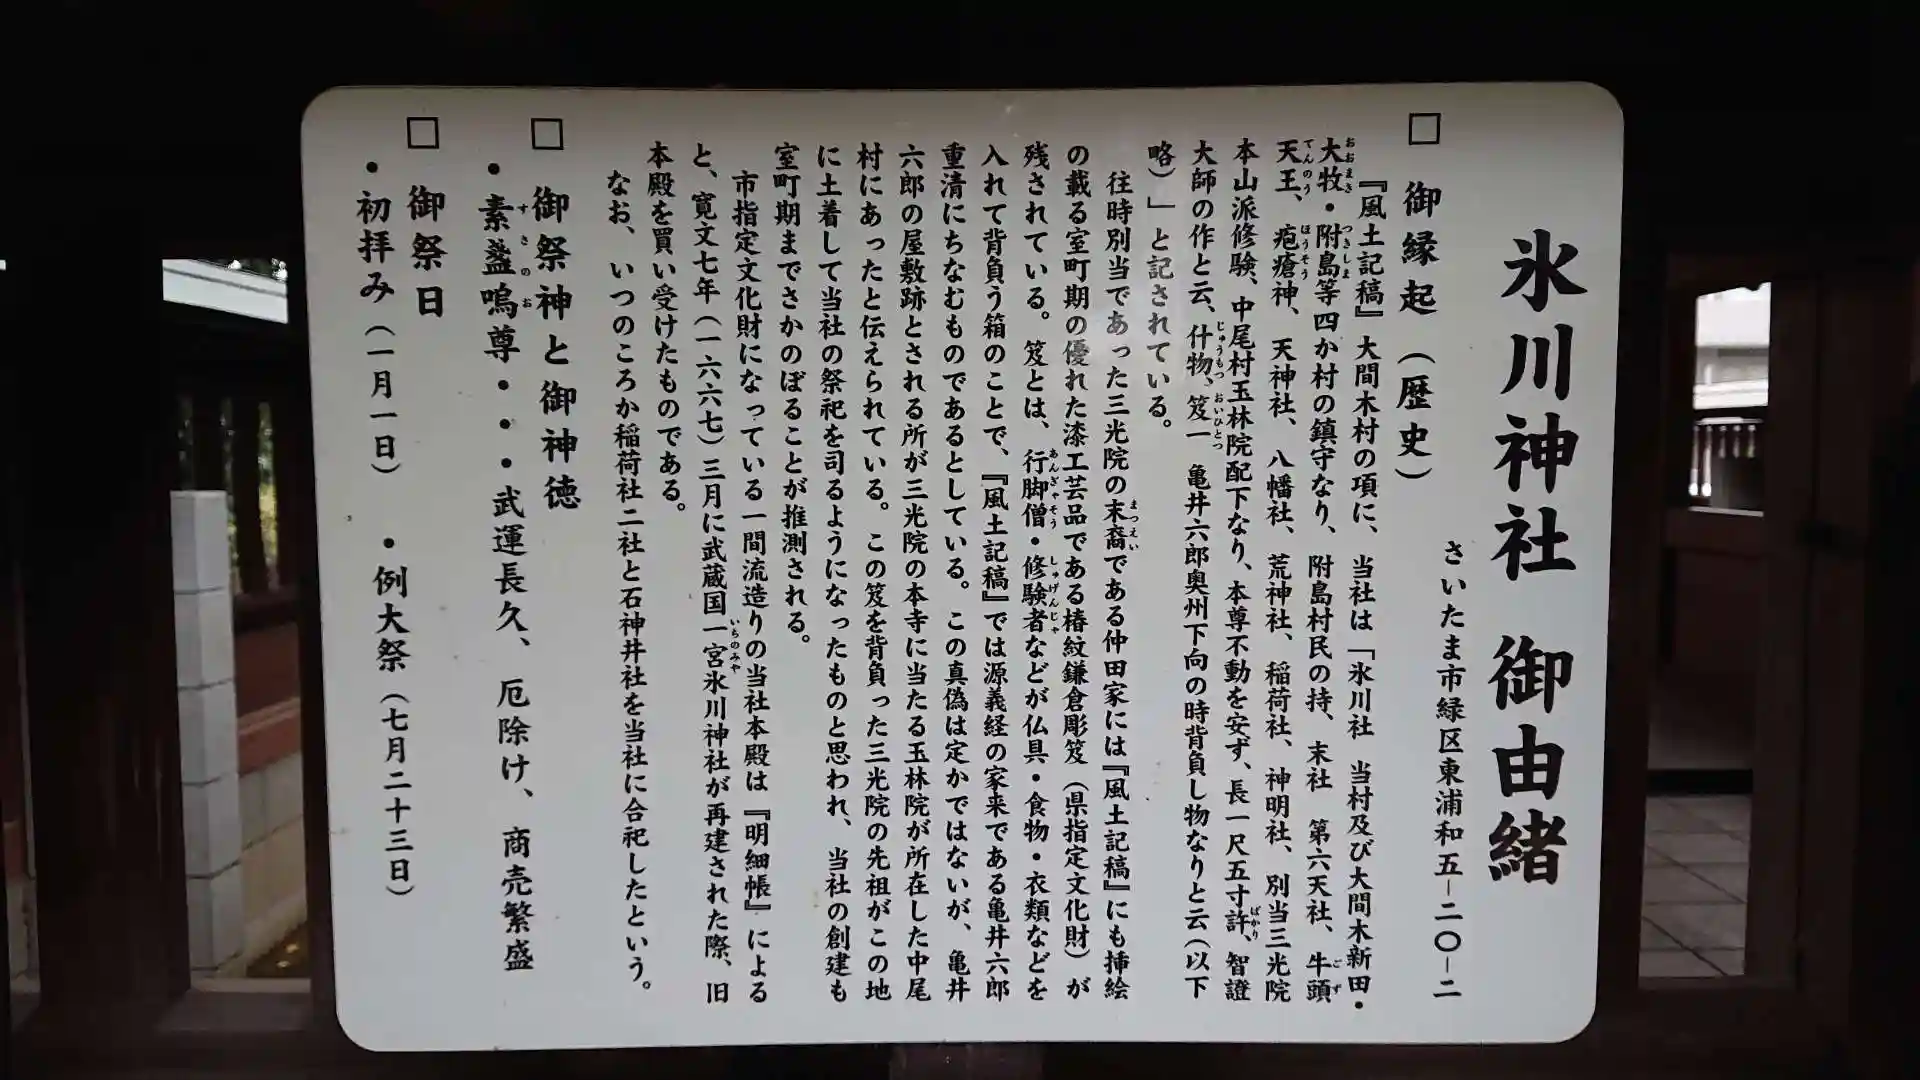 氷川神社 御由緒
さいたま市緑区東浦和五－二〇－二
□ 御縁起（歴史）
『風土記稿』大間木村の項に、当社は「氷川社 当村及び大間木新田・
大牧・附島等四か村の鎮守なり、附島村民の持、末社 第六天社、牛頭
天王、疱瘡神、天神社、八幡社、荒神社、稲荷社、神明社、別当三光院
本山派修験、中尾村玉林院配下なり、本尊不動を安ず、長一尺五寸許、智證
大師の作と云、什物、笈一 亀井六郎奥州下向の時背負し物なりと云（以下
略）」と記されている。
往時別当であった三光院の末裔である仲田家には『風土記稿』にも挿絵
の載る室町期の優れた漆工芸品である椿紋鎌倉彫笈（県指定文化財）が
残されている。笈とは、行脚僧・修験者などが仏具・食物・衣類などを
入れて背負う箱のことで、『風土記稿』では源義経の家来である亀井六郎
重清にちなむものであるとしている。この真偽は定かではないが、亀井
六郎の屋敷跡とされる所が三光院の本寺に当たる玉林院が所在した中尾
村にあったと伝えられている。この笈を背負った三光院の先祖がこの地
に土着して当社の祭祀を司るようになったものと思われ、当社の創建も
室町期までさかのぼることが推測される。
市指定文化財になっている一間流造りの当社本殿は『明細帳』による
と、寛文七年（一六六七）三月に武蔵国一宮氷川神社が再建された際、旧
本殿を買い受けたものである。
なお、いつのころか稲荷社二社と石神井社を当社に合祀したという。
□ 御祭神と御神徳
・素盞嗚尊・・・武運長久、厄除け、商売繁盛
□ 御祭日
・初拝み（一月一日） ・例大祭（七月二十三日）